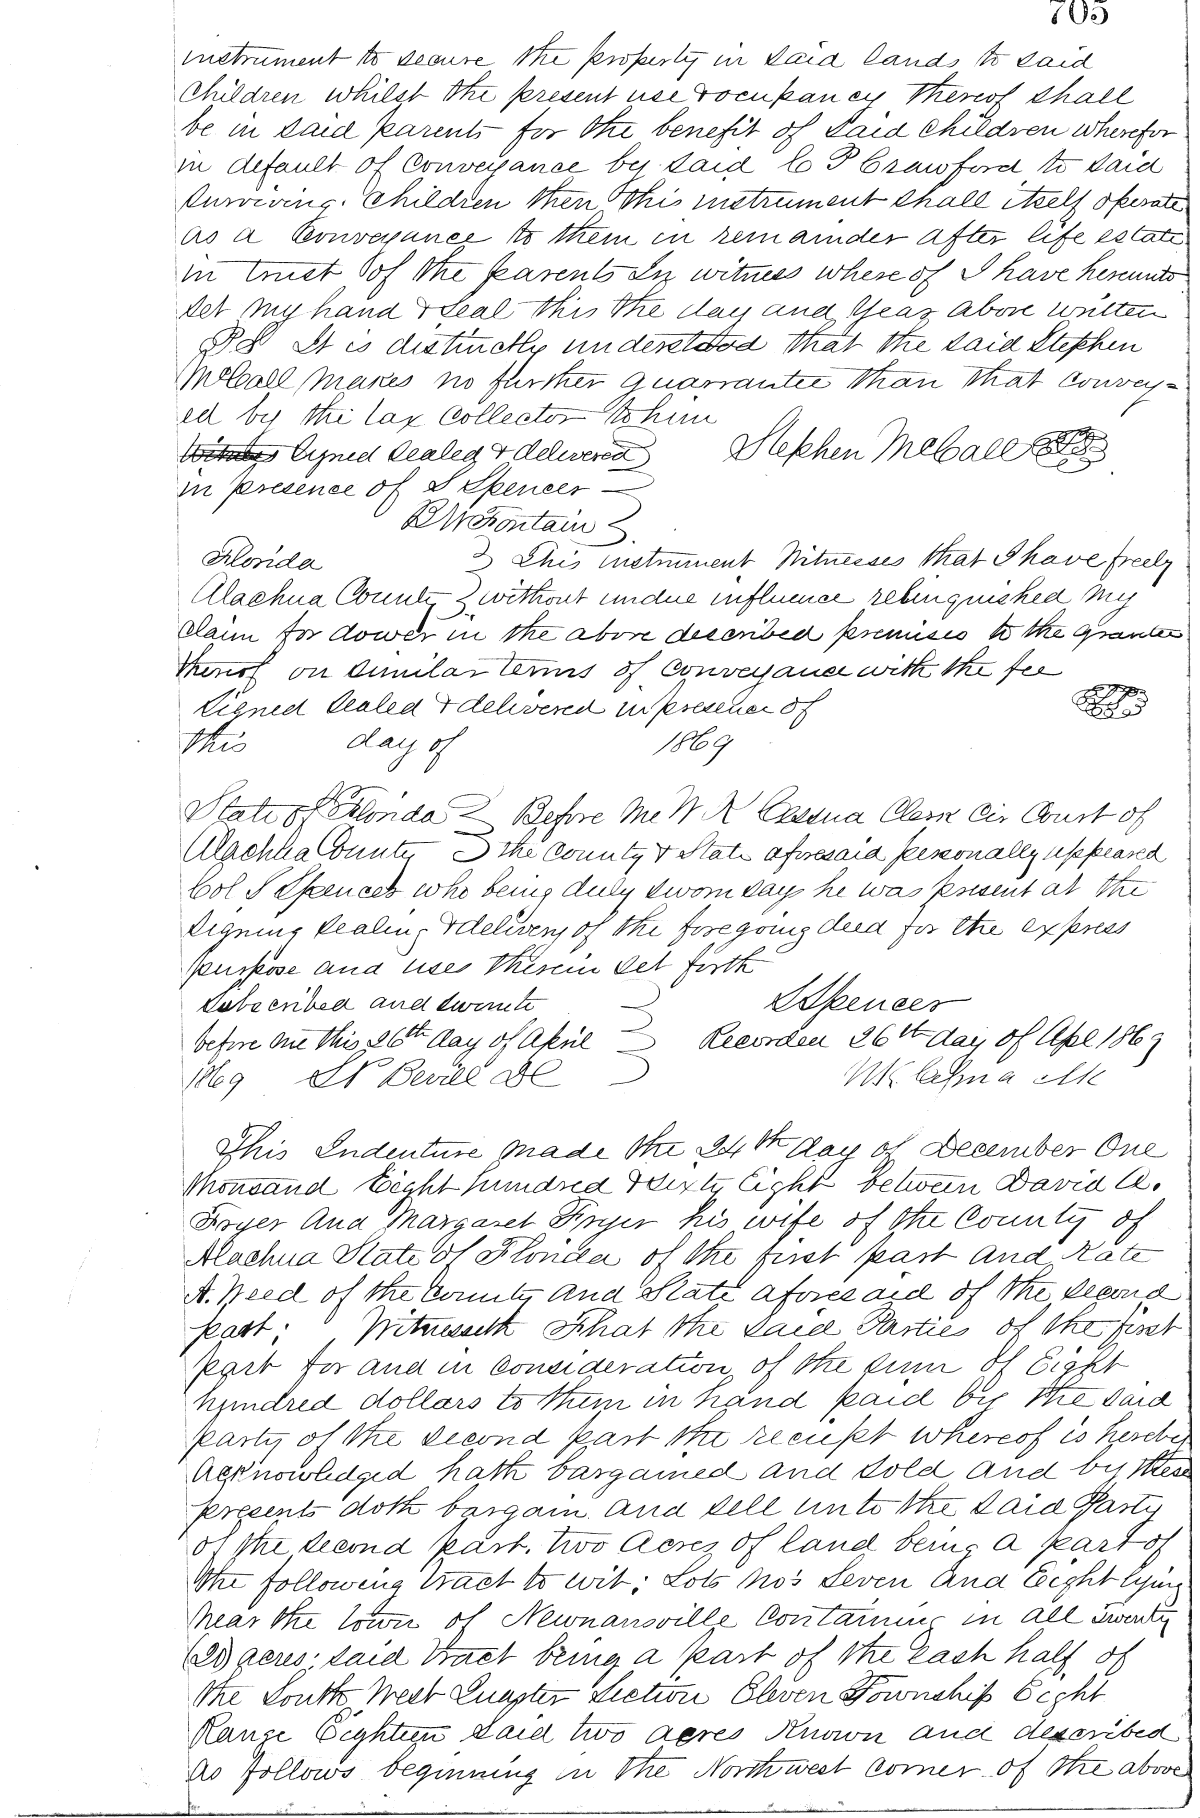 705
instrument to secure the property in said lands to said
children whilst the present use & ocupancy thereof shall
be in said parents for the benefit of said children wherefor
in default of conveyance by said C P Crawford to said
surviving children then this instrument shall itself operate
as a conveyance to them in remainder after life estate
in trust of the parents In witness whereof I have hereunto
set my hand & seal this the day and year above written
PS It is distinctly understood that the said Stephen
McCall makes no further guarrantee than that convey=
ed by the tax collector to him
Witness Signed sealed & delivered Stephen McCall
in presence of S Spencer
B W Fontain
Florida } This instrument Witnesses that I have freely
Alachua County } without undue influence relinquished my
claim for dower in the above described premises to the grantee
thereof on similar terms of conveyance with the fee
Signed sealed & delivered in presence of
this day of 1869
State of Florida } Before me W K Cessna Clerk Cir Court of
Alachua County } the County & State aforesaid personally appeared
Col S Spencer who being duly sworn says he was present at the
signing sealing & delivery of the foregoing deed for the express
purpose and uses therein set forth
Subscribed and sworn to } S Spencer
before me this 26th day of April } Recorded 26th day of Apl 1869
1869 Bevill DC } W K Cessna Clk
This Indenture made the 24th day of December One
thousand Eight hundred & sixty Eight between David A.
Fryer And Margaret Fryer his wife of the County of
Alachua State of Florida of the first part and Kate
A. Weed of the County and State aforesaid of the second
part; Witnesseth That the said Parties of the first
part for and in consideration of the sum of Eight
hundred dollars to them in hand paid by the said
party of the second part the reciept whereof is hereby
Acknowledged hath bargained and sold and by these
presents doth bargain and sell unto the said Party
of the second part. two Acres of land being a part of
the following tract to wit; Lots No's Seven and Eight lying
near the town of Newnansville containing in all twenty
(20) acres; said tract being a part of the east half of
the South West Quarter Section Eleven Township Eight
Range Eighteen said two acres known and described
as follows beginning in the Northwest corner of the above